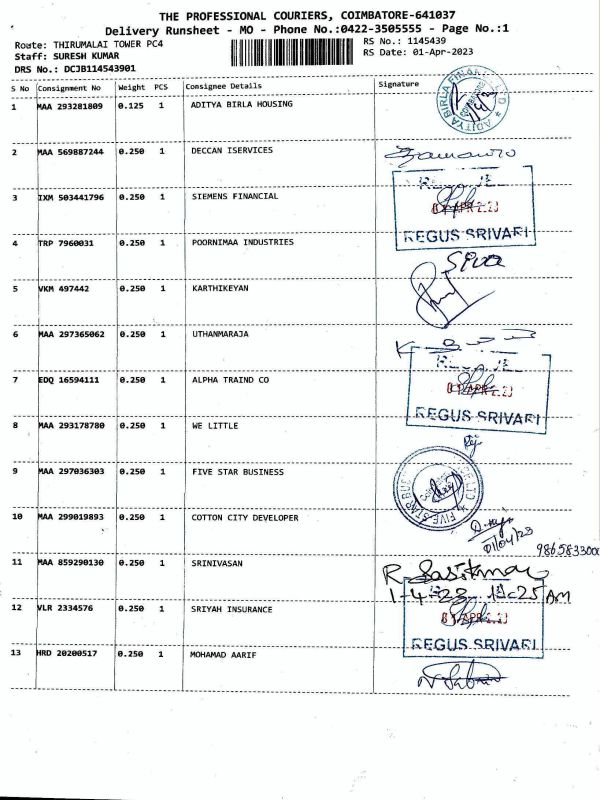 THE PROFESSIONAL COURIERS, COIMBATORE-641037
Delivery Runsheet - MO - Phone No.:0422-3505555 - Page No.:1
Route: THIRUMALAI TOWER PC4
RS No.: 1145439
Staff: SURESH KUMAR
RS Date: 01-Apr-2023
DRS No.: DCJB114543901
S No Consignment No Weight PCS Consignee Details Signature
1 MAA 293281809 0.125 1 ADITYA BIRLA HOUSING
2 MAA 569887244 0.250 1 DECCAN ISERVICES
3 IXM 503441796 0.250 1 SIEMENS FINANCIAL
REGUS SRIVARI
4 TRP 7960031 0.250 1 POORNIMAA INDUSTRIES
Siva
5 VKM 497442 0.250 1 KARTHIKEYAN
6 MAA 297365062 0.250 1 UTHANMARAJA
7 EDQ 16594111 0.250 1 ALPHA TRAIND CO
REGUS SRIVARI
8 MAA 293178780 0.250 1 WE LITTLE
9 MAA 297036303 0.250 1 FIVE STAR BUSINESS
10 MAA 299019893 0.250 1 COTTON CITY DEVELOPER
01/04/23
9865833000
11 MAA 859290130 0.250 1 SRINIVASAN
R Sasikmar
1-4-23 11-25 AM
12 VLR 2334576 0.250 1 SRIYAH INSURANCE
REGUS SRIVARI
13 HRD 20200517 0.250 1 MOHAMAD AARIF